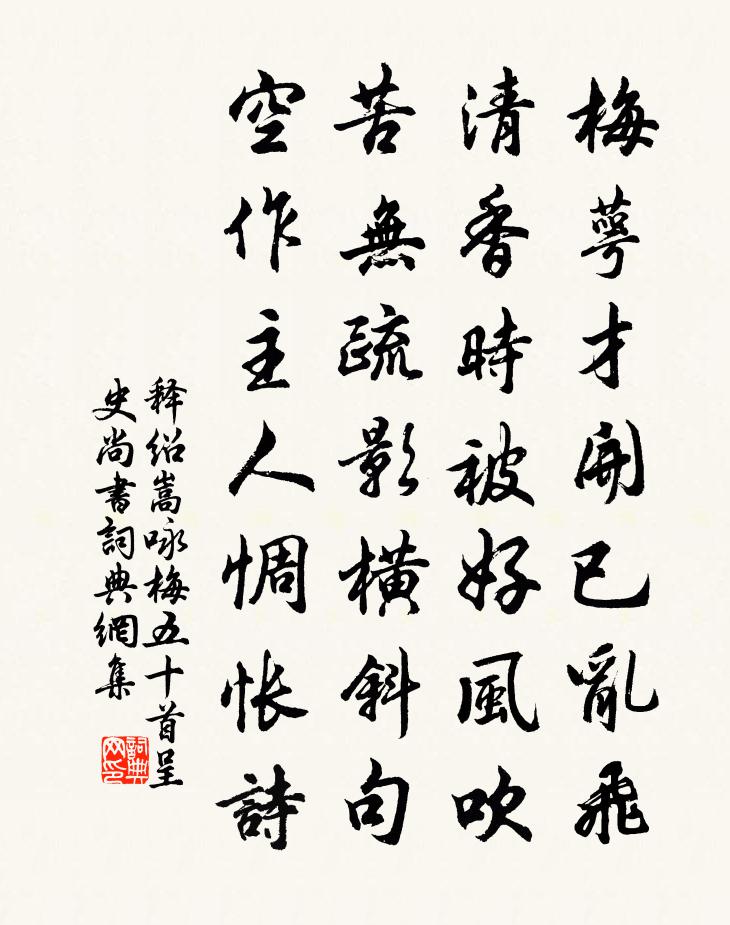 梅萼才開已亂飛
清香時被好風吹
苦無疏影橫斜句
空作主人惆悵詩
释紹嵩咏梅五十首呈
史尚書詞典網集
詞典網印